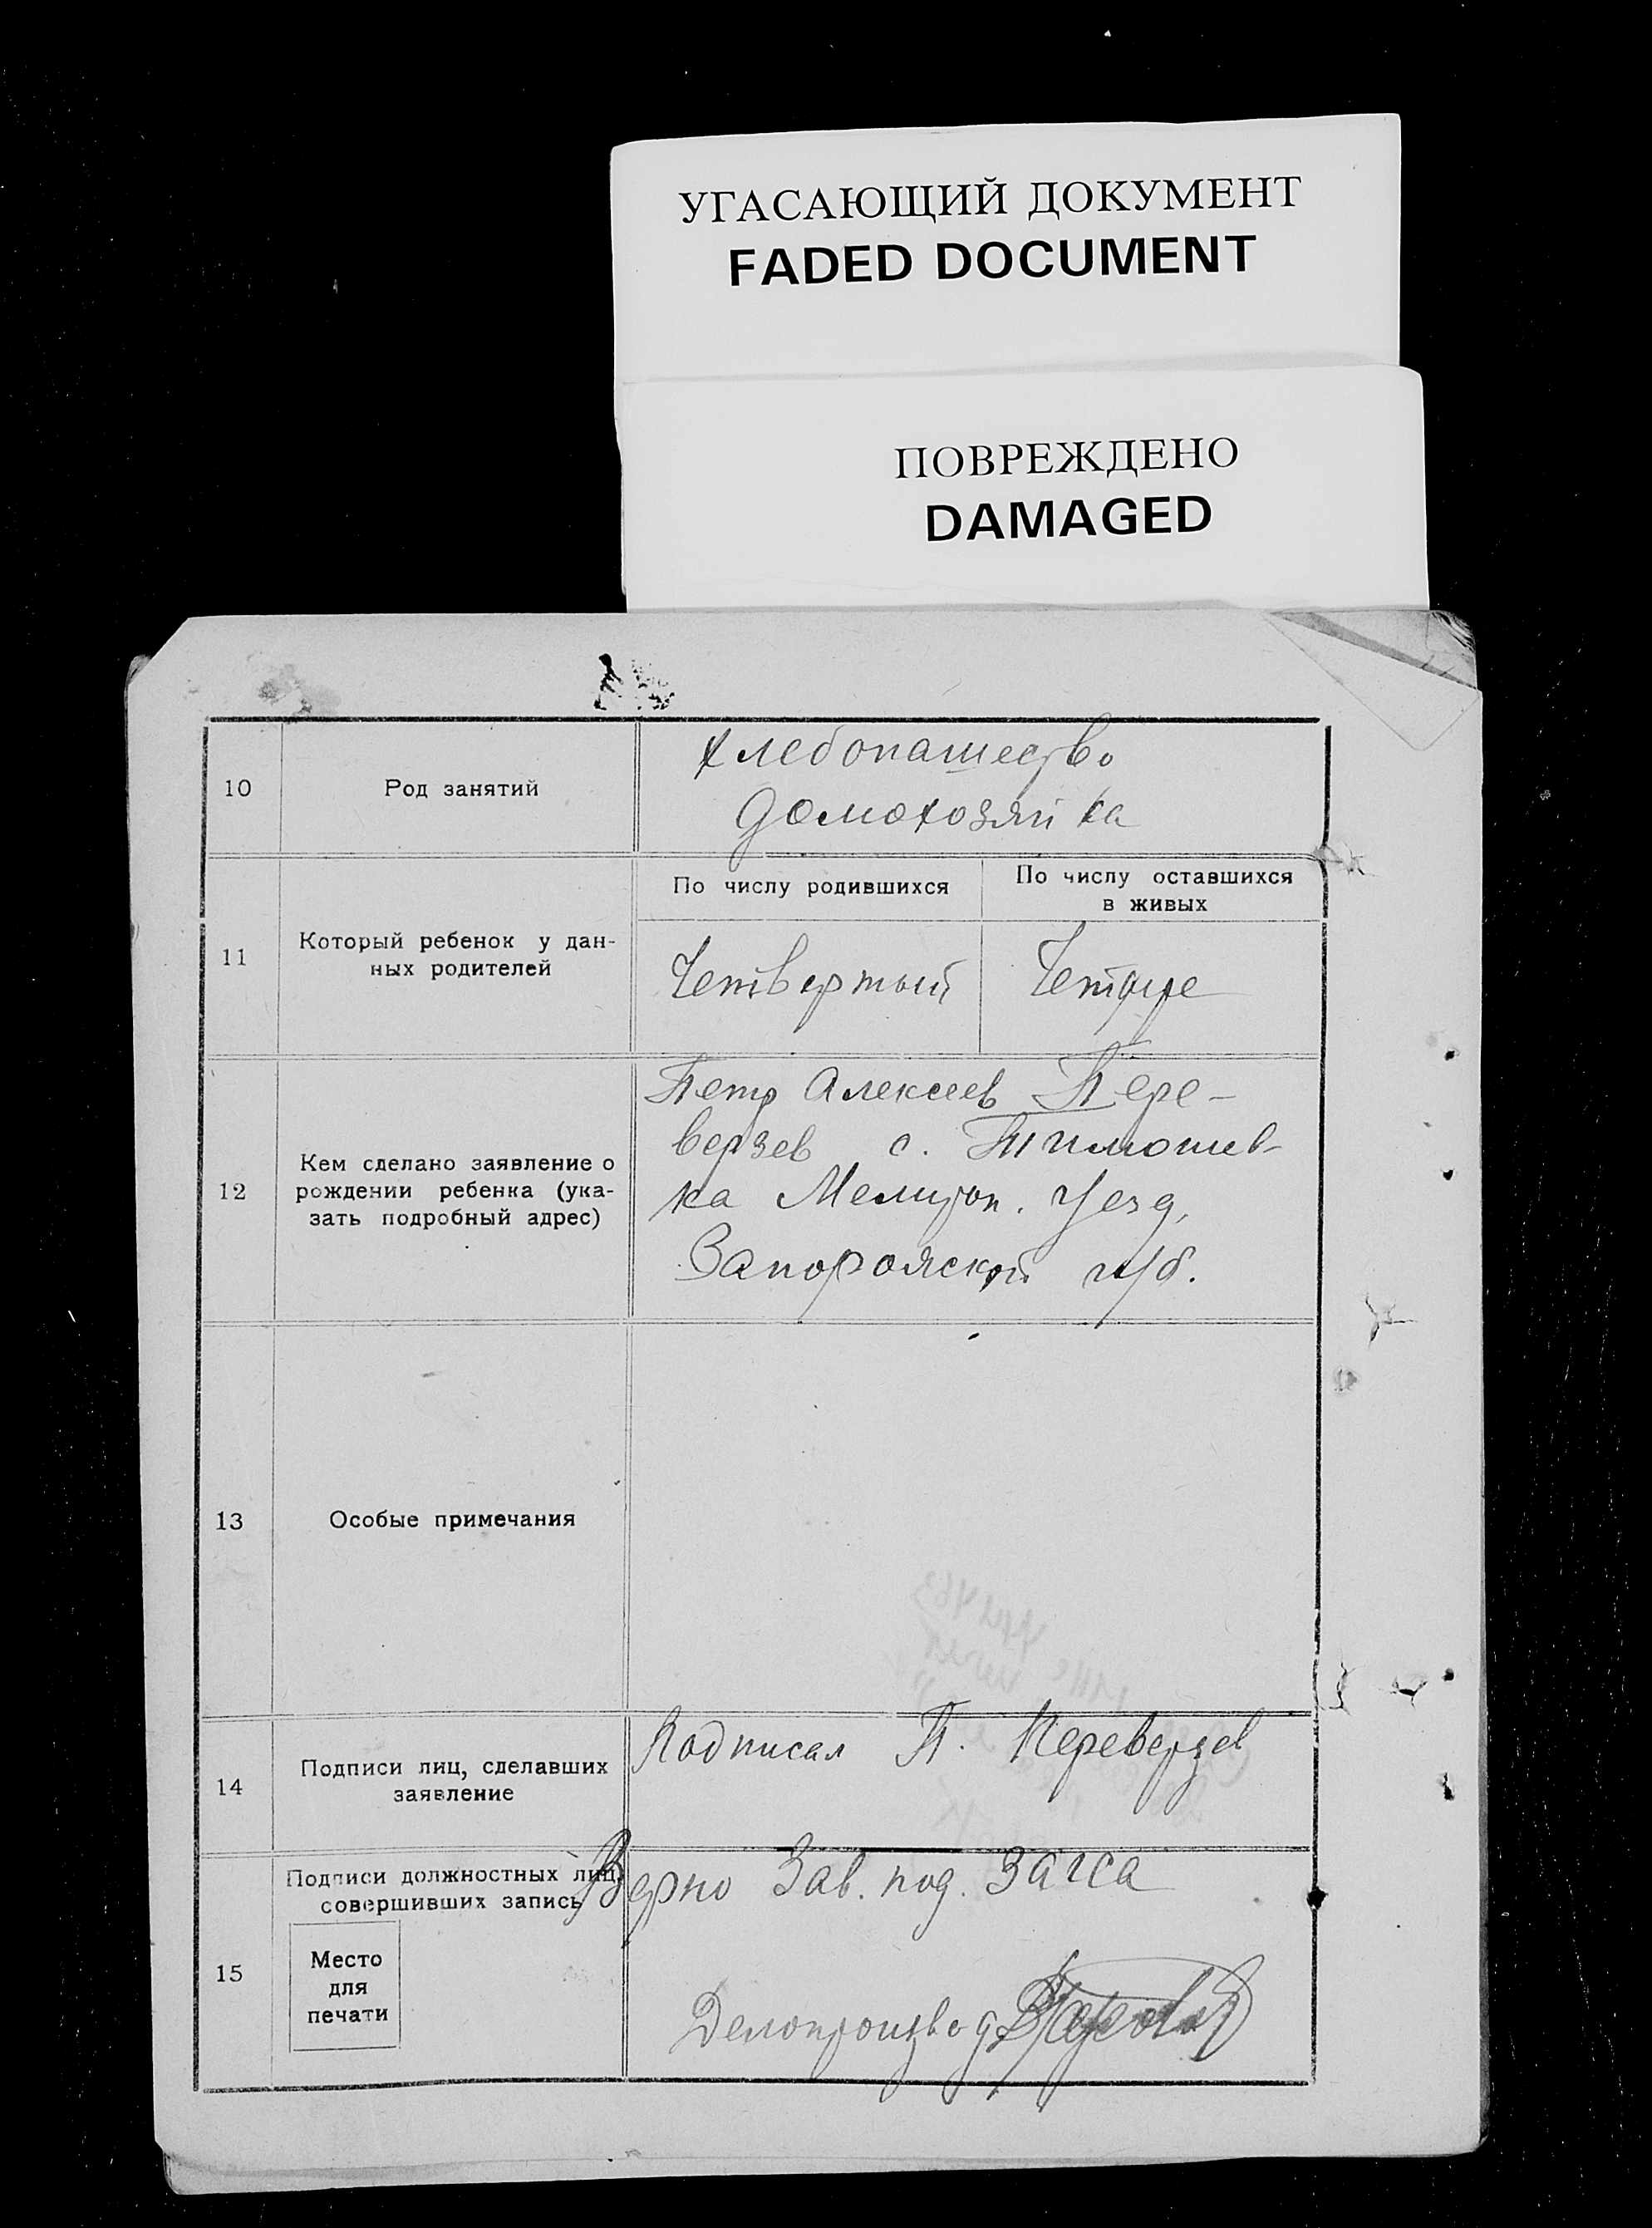 УГАСАЮЩИЙ ДОКУМЕНТ
FADED DOCUMENT
ПОВРЕЖДЕНО
DAMAGED
10
Род занятий
Хлебопашество
домохозяйка
11
Который ребенок у дан-
ных родителей
По числу родившихся
Четвертый
По числу оставшихся
в живых
Четыре
12
Кем сделано заявление о
рождении ребенка (ука-
зать подробный адрес)
Петр Алексеев Пере-
верзев с. Тимошев-
ка Мелитоп. Уезд,
Запорожской губ.
13
Особые примечания
14
Подписи лиц, сделавших
заявление
Подписал П. Переверзев
15
Подписи должностных лиц,
совершивших запись
Место
для
печати
Верно Зав. под. Загса
Делопроизвод